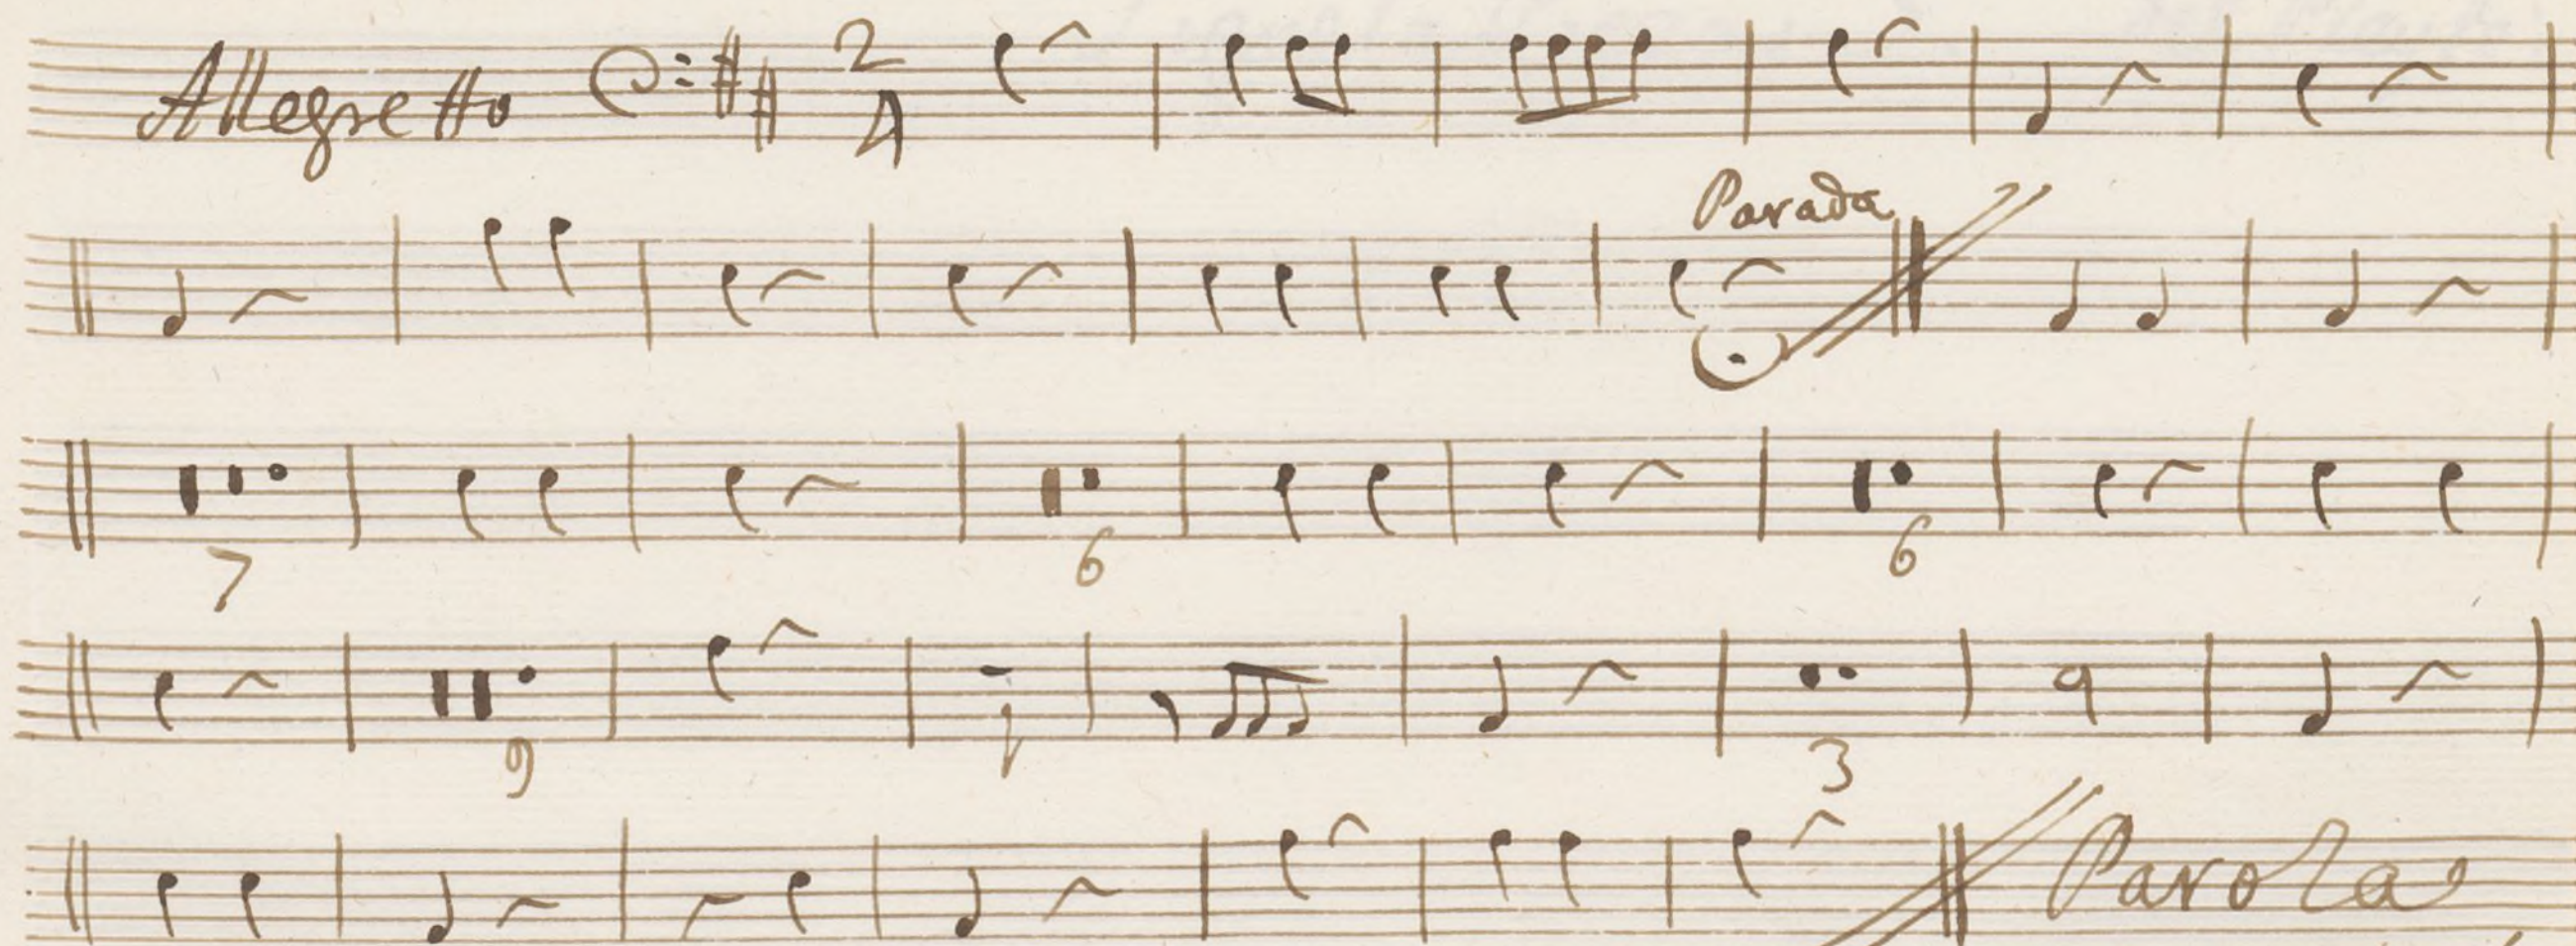 Allegretto 2
4
Parada
7 6 6
9 1 3
Parola